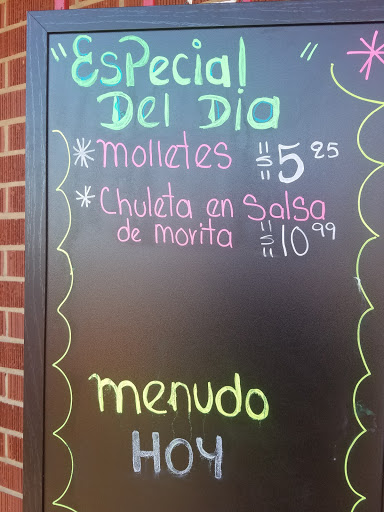 "Especial"
Del Dia
* molletes $5.25
* Chuleta en Salsa
de morita $10.99
menudo
HOY